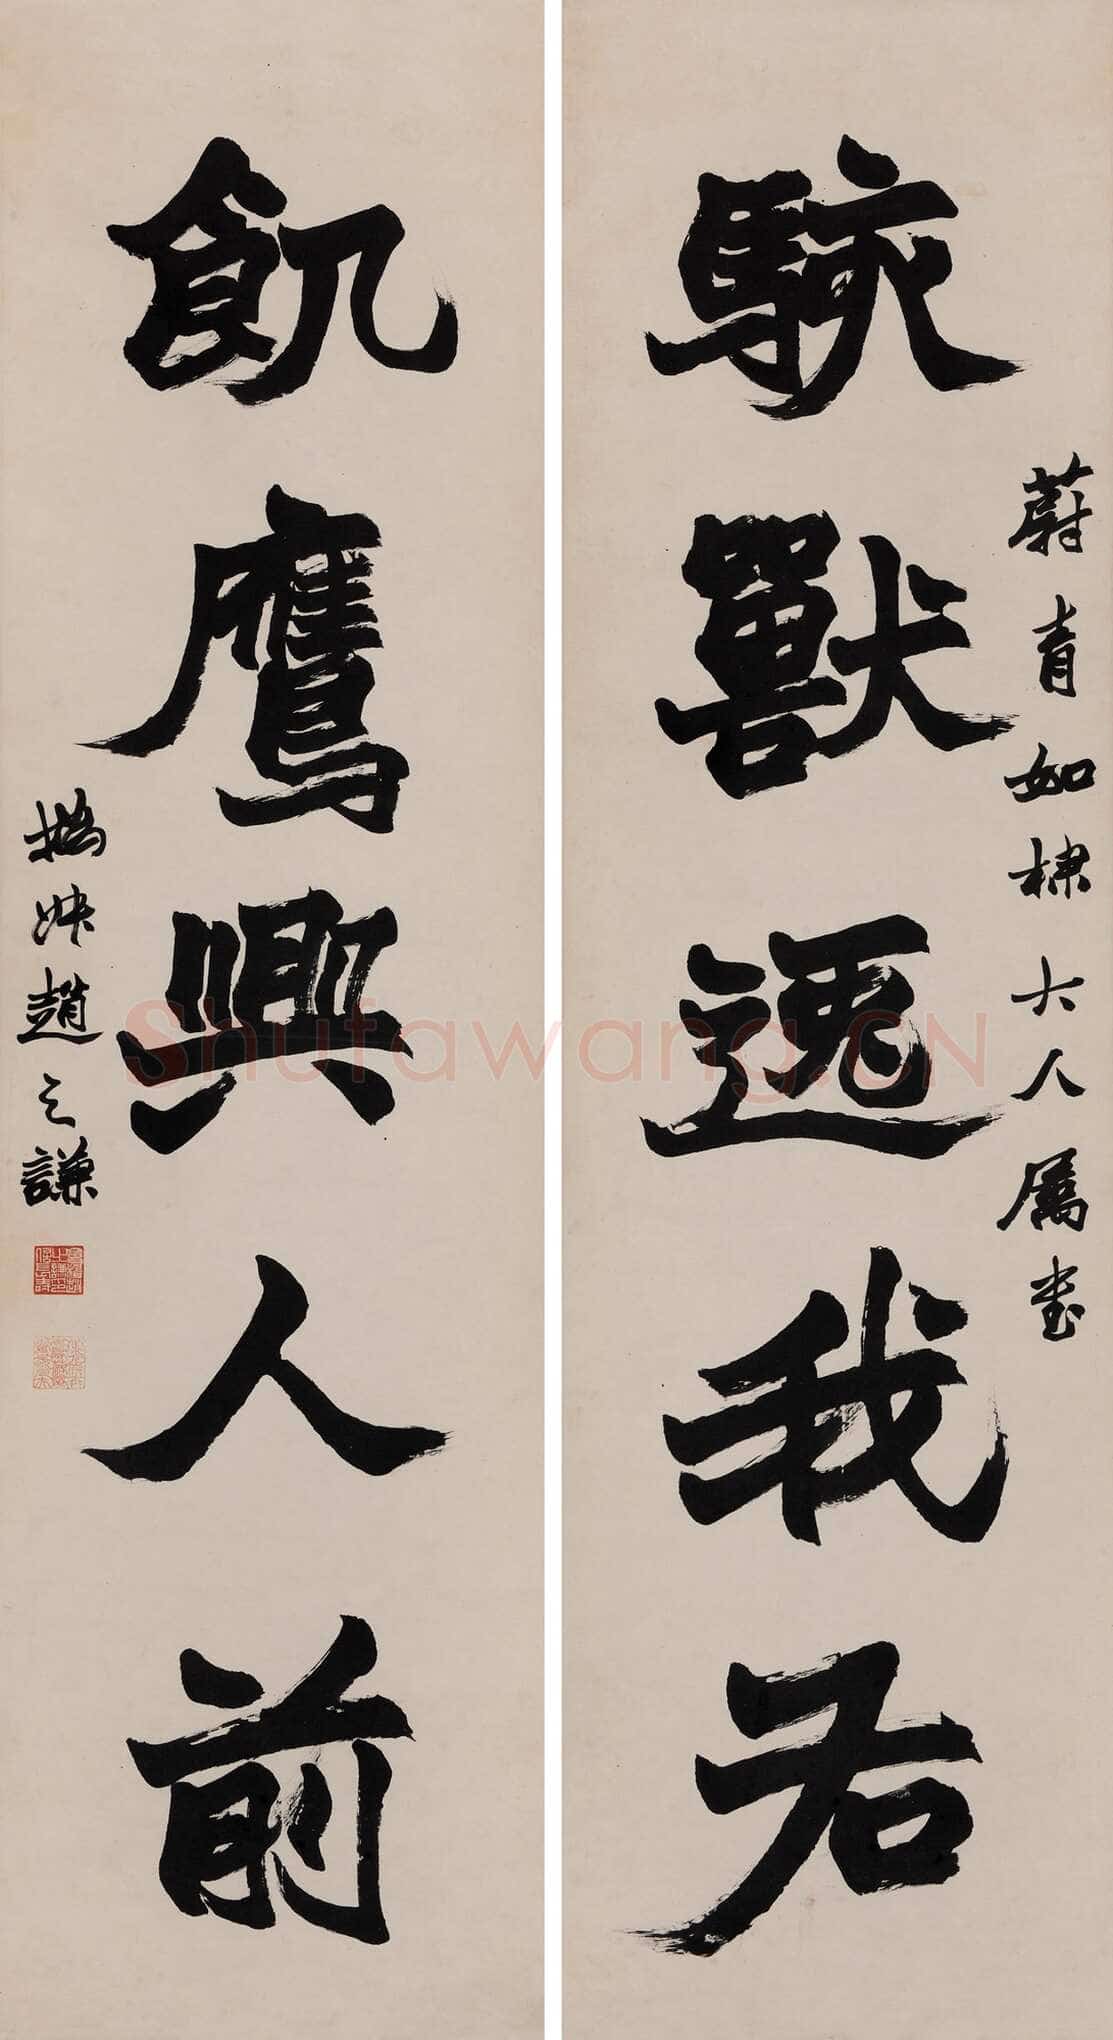 駭獸逸我右
蔚青如棣大人屬書
飢鷹興人前
撝叔趙之謙
Shufawang.CN